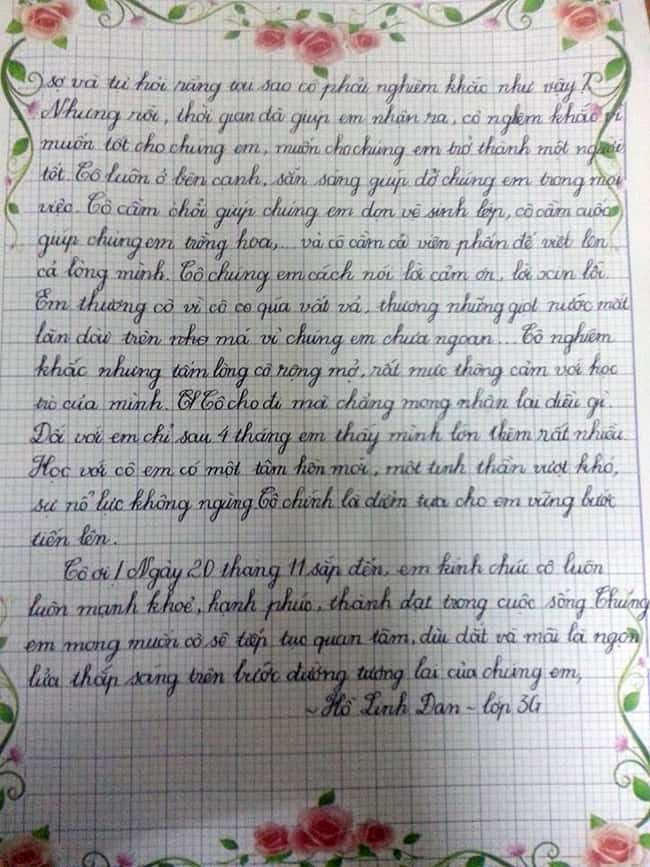 sợ và tự hỏi rằng tại sao cô phải nghiêm khắc như vậy?
Nhưng rồi, thời gian đã giúp em nhận ra, cô nghêm khắc vì
muốn tốt cho chúng em, muốn cho chúng em trở thành một người
tốt. Cô luôn ở bên cạnh, sẵn sàng giúp đỡ chúng em trong mọi
việc. Cô cầm chổi giúp chúng em dọn vệ sinh lớp, cô cầm cuốc
giúp chúng em trồng hoa,... và cô cầm cả viên phấn để viết lên
cả lòng mình. Cô chúng em cách nói lời cảm ơn, lời xin lỗi.
Em thương cô vì cô co qúa vất vả, thương những giọt nước mắt
lăn dài trên nho má vì chúng em chưa ngoan... Cô nghiêm
khắc nhưng tấm lòng cô rộng mở, rất mực thông cảm với học
trò của mình. Cô cho đi mà chẳng mong nhận lại điều gì.
Đối với em chỉ sau 4 tháng em thấy mình lớn thêm rất nhiều.
Học với cô em có một tâm hồn mới, một tinh thần vượt khó,
sự nổ lực không ngừng. Cô chính là điểm tựa cho em vững bước
tiến lên.
Cô ơi! Ngày 20 tháng 11 sắp đến, em kính chúc cô luôn
luôn mạnh khoẻ, hạnh phúc, thành đạt trong cuộc sống. Chúng
em mong muốn cô sẽ tiếp tục quan tâm, dìu dắt và mãi là ngọn
lửa thắp sáng trên bước đường tương lai của chúng em,
~ Hồ Linh Đan ~ lớp 3G